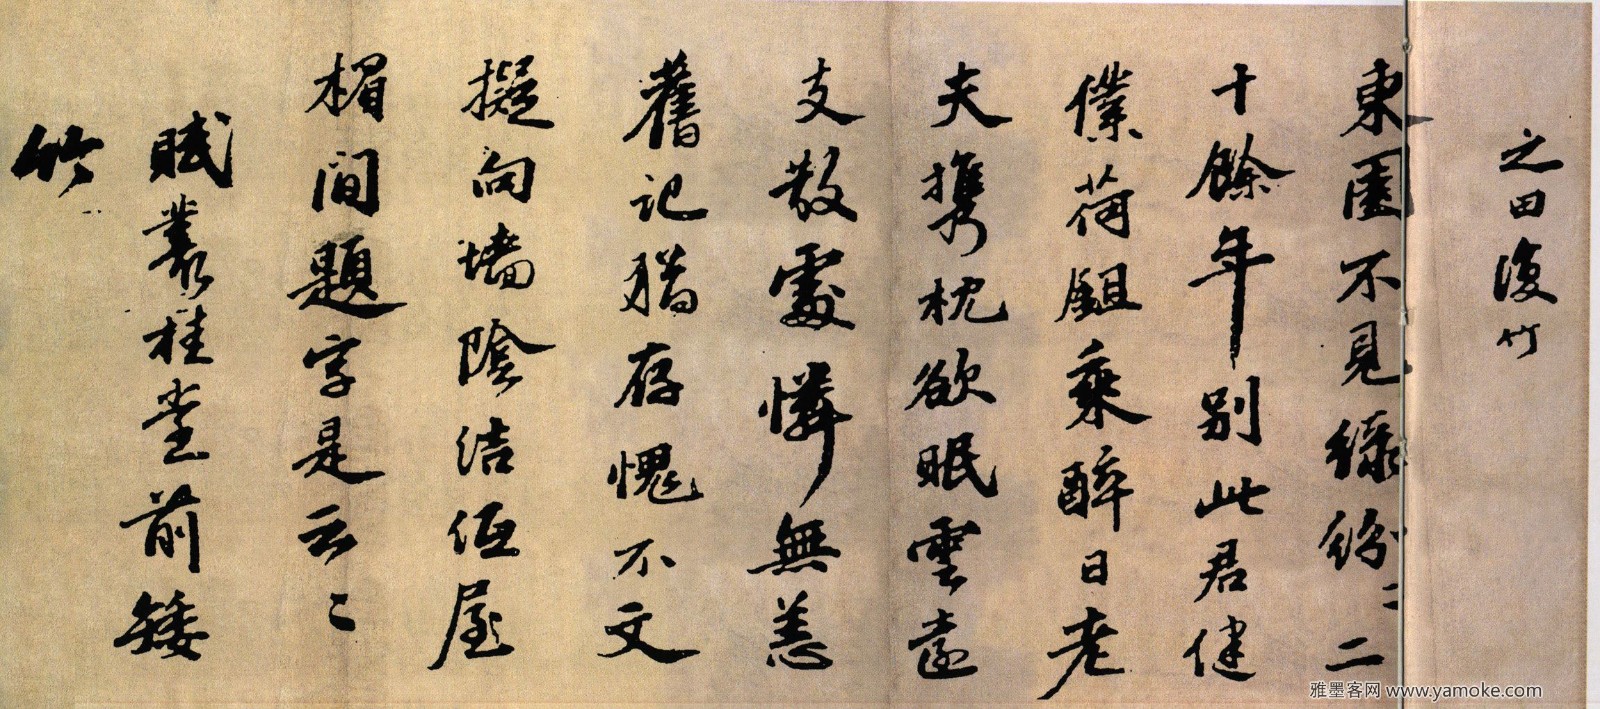 之田復竹
東園不見綠紛〻二
十餘年別此君健
僕荷鉏乘醉日老
夫攜枕欲眠雲遠
支散處憐無恙
舊記猶存愧不文
擬向墻陰結伍屋
楣間題字是云〻
賦叢桂堂前矮
竹
雅墨客网 www.yamoke.com